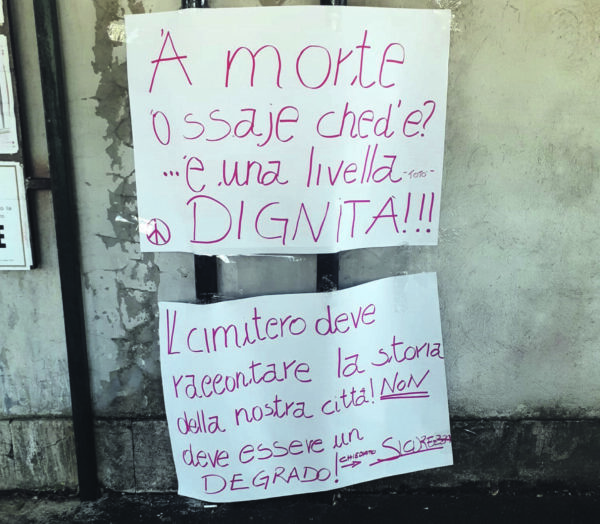 'A morte
'O ssaje ched'è?
...è una livella...TOTO'...
DIGNITÀ!!!
Il cimitero deve
raccontare la storia
della nostra città! NON
deve essere un
DEGRADO! CHIEDIAMO SICUREZZA
E